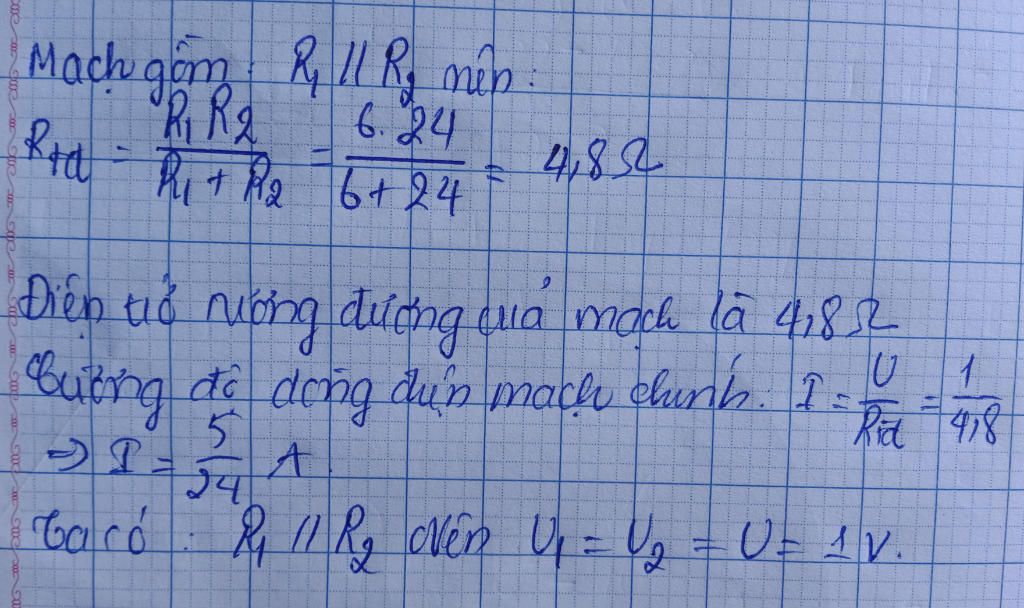 Mạch gồm: R₁ // R₂ nên:
R_tđ = (R₁ R₂)/(R₁ + R₂) = (6. 24)/(6 + 24) = 4,8 Ω
Điện trở tương đương của mạch là 4,8 Ω
Cường độ dòng điện mạch chính: I = U/R_tđ = 1/4,8
=> I = 5/24 A.
Ta có: R₁ // R₂ nên U₁ = U₂ = U = 1V.